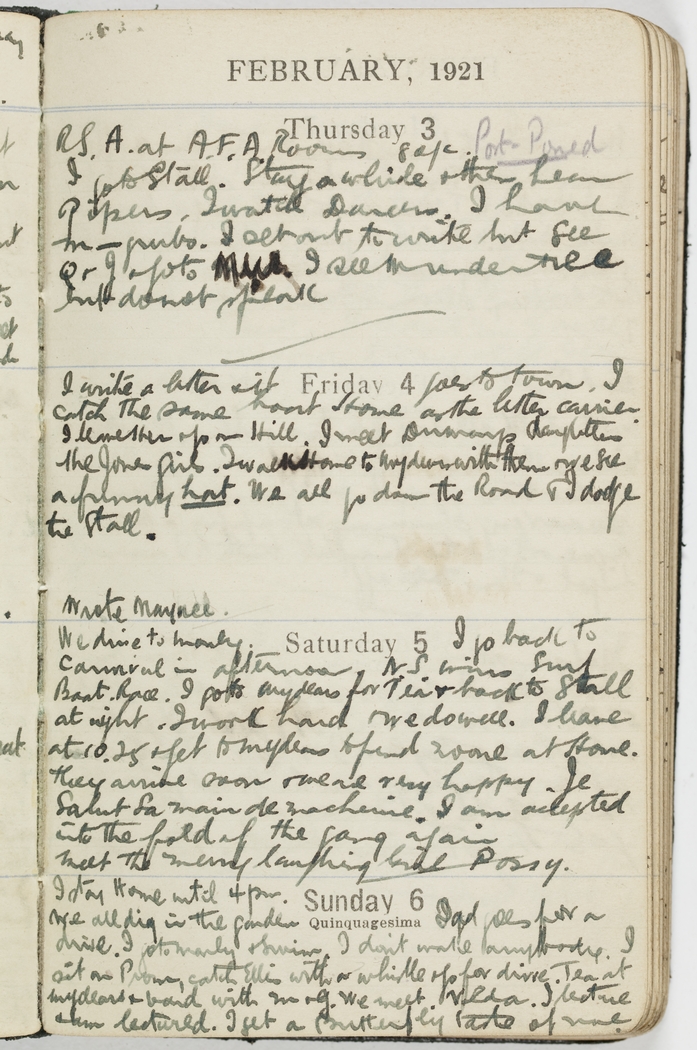 FEBRUARY, 1921
Thursday 3
R.S.A. at A.F.A. Rooms Post-Poned
I go to Stall. Stay a while & then hear
Pipers. I watch Dancers. I have
I set out to write but see
I see M under tree
but do not speak
Friday 4
I write a letter & it goes to town. I
catch the same boat Home as the letter carrier.
I leave Her up on Hill. I meet daughters
the Jones girls. I walk Home to mydears with them & we see
a funny hat. We all go down the Road & I dodge
the Stall.
Wrote Maynee.
Saturday 5
We drive to manly. I go back to
Carnival in afternoon, N.S. wins Surf
Boat Race. I go to mydears for Tea & back to Stall
at night. I work hard & we do well. I leave
at 10.25 & get to mydears to find no one at Home.
they arrive soon & we are very happy. Je
Sa main de
I am accepted
into the fold of the gang again
meet the merry laughing Possy.
Sunday 6
Quinquagesima
I stay Home until 4 pm.
we all dig in the garden Dad goes for a
drive. I go to manly & swim, I don't wake anybody. I
sit on Prom, catch Ellis with a whistle & go for drive. Tea at
mydears & band with m & g. We meet Velda. I lecture
& am lectured. I get a butterfly